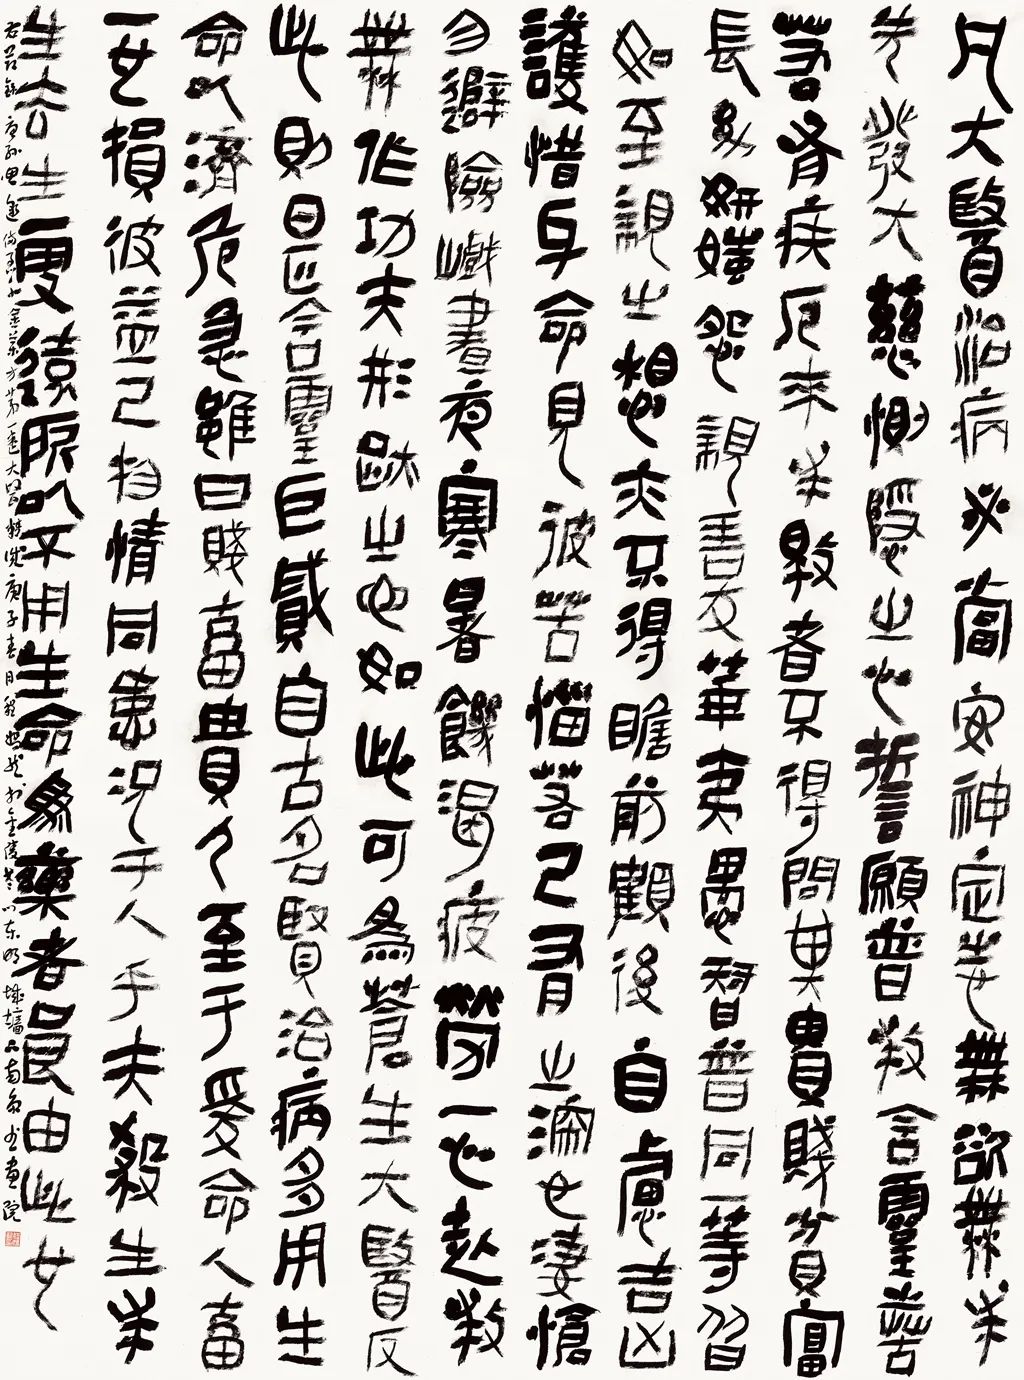 凡大醫治病必當安神定志無欲無求
先發大慈惻隱之心誓願普救含靈苦
若有疾厄來求救者不得問其貴賤貧富
長幼妍媸怨親善友華夷愚智普同一等皆
如至親之想亦不得瞻前顧後自慮吉凶
護惜身命見彼苦惱若己有之深心悽愴
勿避險巇晝夜寒暑饑渴疲勞一心赴救
無作功夫形跡之心如此可為蒼生大醫反
此則是含靈巨賊自古名賢治病多用生
命以濟危急雖曰賤畜貴人至于愛命人畜
一也損彼益己物情同患況于人乎夫殺生求
生去生更遠所以不用生命為藥者良由此也
右節錄唐孫思邈備急千金要方第一卷大醫精誠庚子春月程然於金陵山東明城牆下南京書畫院